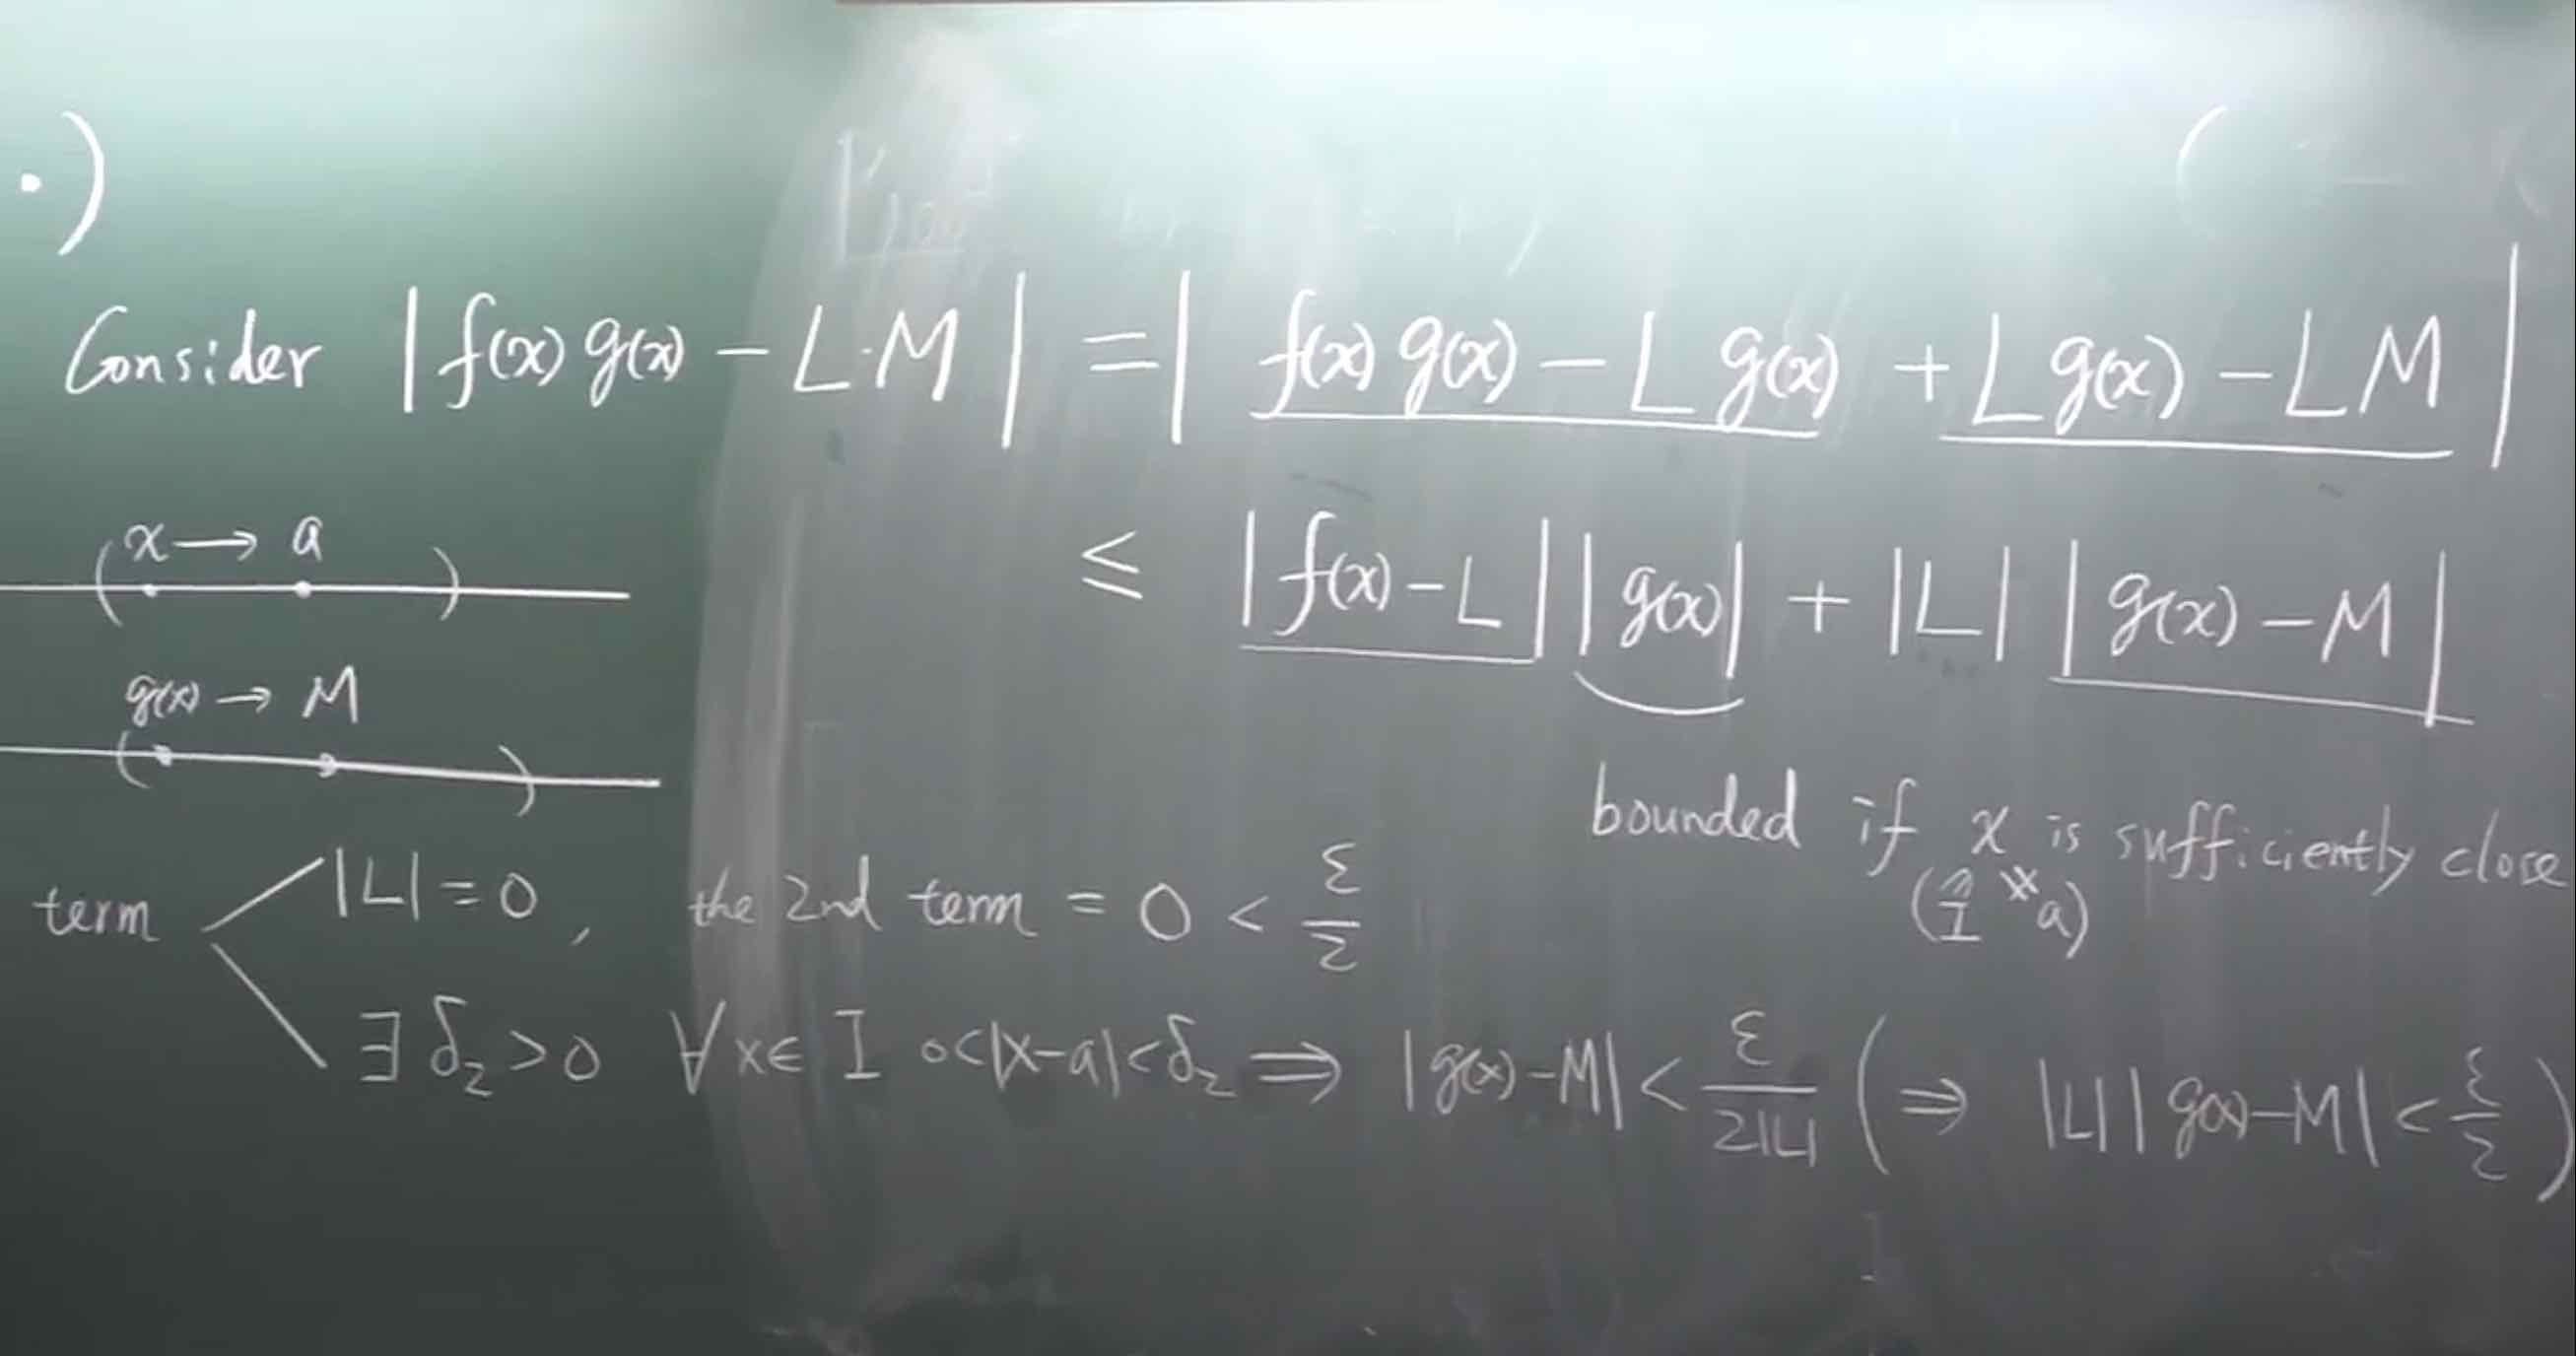 ·)
Consider | f(x) g(x) − L·M | = | f(x) g(x) − L g(x) + L g(x) − L M |
x → a
≤ | f(x) − L | | g(x) | + | L | | g(x) − M |
g(x) → M
bounded if x is sufficiently close
(I a)
term |L| = 0 , the 2nd term = 0 < ε/2
∃ δ₂ > 0 ∀ x ∈ I 0<|x−a|<δ₂ ⇒ | g(x) − M | < ε/2|L| ( ⇒ |L| | g(x) − M | < ε/2 )